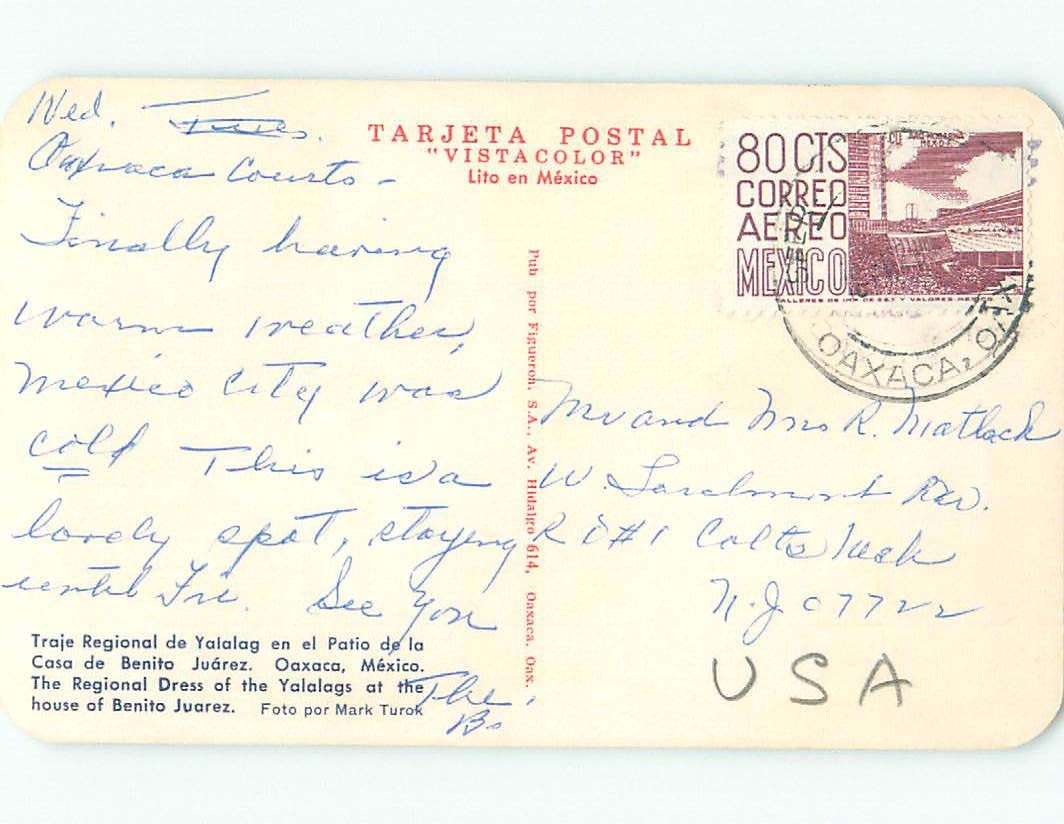 Wed. Tues.
Oaxaca Courts -
Finally having
warm weather,
Mexico City was
cold This is a
lovely spot, staying
until Fri. See you
The
B.
TARJETA POSTAL
"VISTACOLOR"
Lito en México
80 CTS
CORREO
AEREO
MEXICO
ARQ MODERNA
MEXICO D.F.
CU
TALLERES DE IMP. DE EST. Y VALORES-MEXICO
OAXACA, OAX
Pub por Figueroa, S.A., Av. Hidalgo 614, Oaxaca, Oax.
Mr and Mrs R. Matlack
W. Larchmont
R D #1 Colts Neck
N.J 07722
USA
Traje Regional de Yalalag en el Patio de la
Casa de Benito Juárez. Oaxaca, México.
The Regional Dress of the Yalalags at the
house of Benito Juarez. Foto por Mark Turok